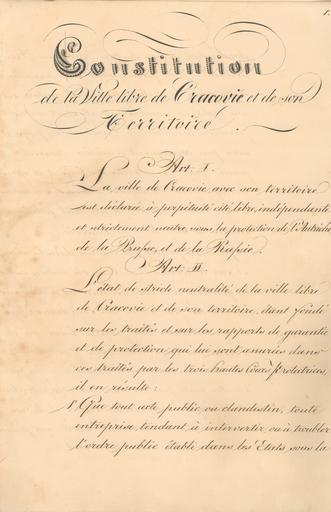 Constitution
de la Ville libre de Cracovie et de son
Territoire.
Art. I.
La ville de Cracovie avec son territoire
est déclarée à perpétuité cité libre, indépendante
et strictement neutre, sous la protection de l'Autriche
de la Prusse, et de la Russie.
Art. II.
L'état de stricte neutralité de la ville libre
de Cracovie et de son territoire, étant fondé
sur les traités et sur les rapports de garantie
et de protection qui lui sont assurées dans
ces traités par les trois hautes Cours Protectrices,
il en résulte:
1° Que tout acte public ou clandestin, toute
entreprise, tendant à intervertir ou à troubler
l'ordre public établi dans les Etats sous la